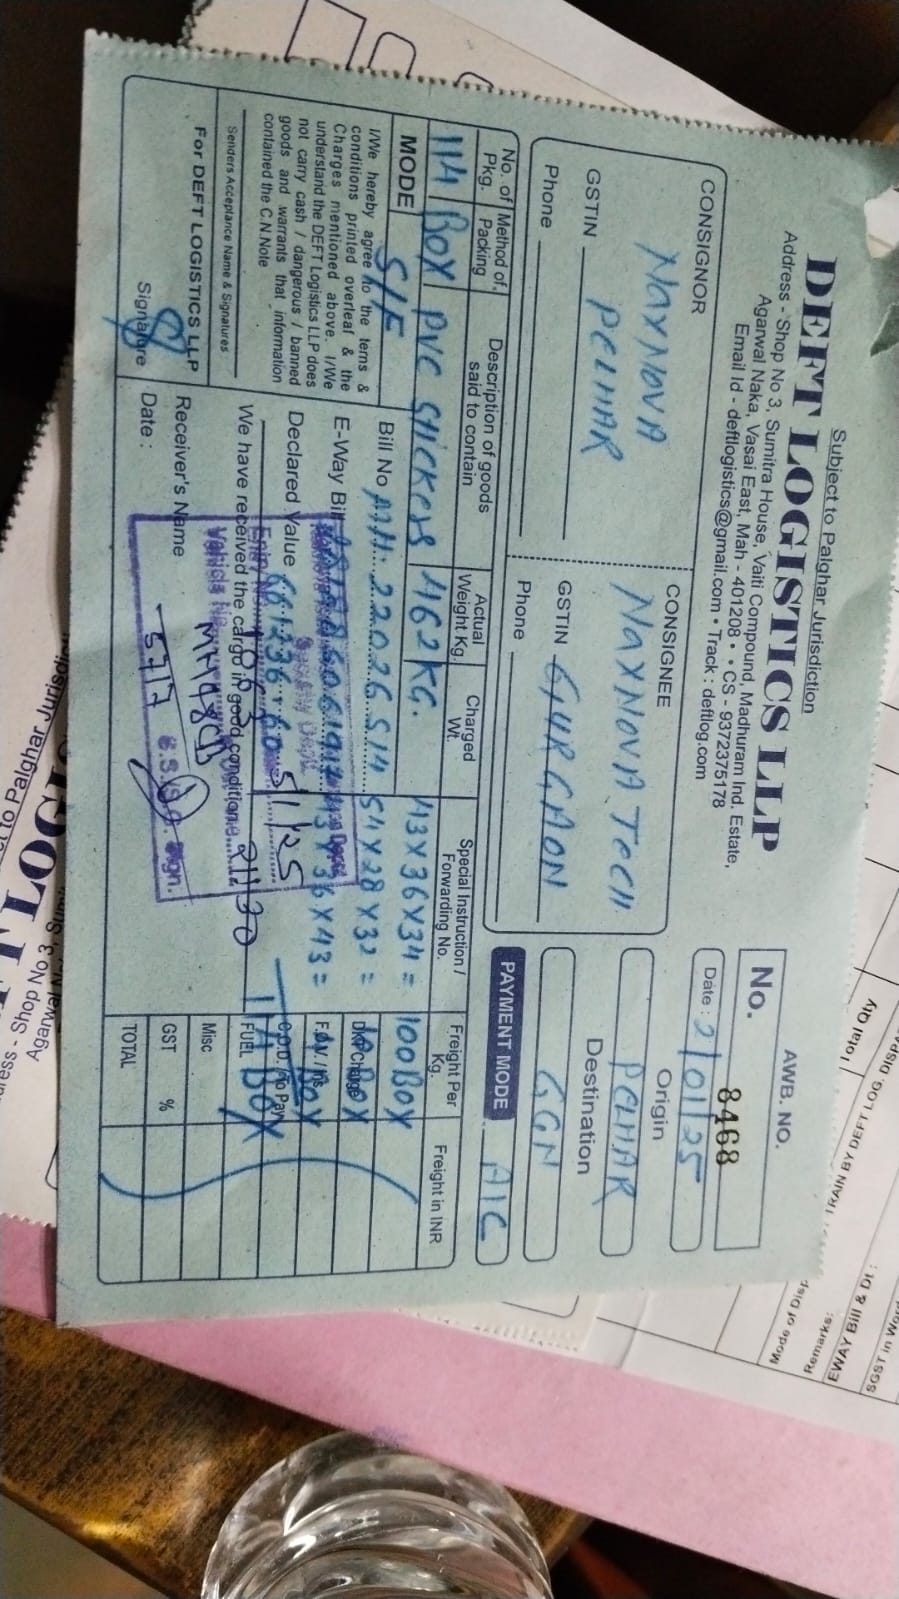 Subject to Palghar Jurisdiction
DEFT LOGISTICS LLP
Address - Shop No 3, Sumitra House, Vaiti Compound, Madhuram Ind. Estate,
Agarwal Naka, Vasai East, Mah - 401208 • • CS - 9372375178
Email Id - deftlogistics@gmail.com • Track : deftlog.com
AWB. NO.
No. 8468
Date : 2/01/25
CONSIGNOR
NAXNOVA
PELHAR
GSTIN
Phone
CONSIGNEE
NAXNOVA TECH
GSTIN GURGAON
Phone
Origin
PELHAR
Destination
GGN
PAYMENT MODE A/C
No. of Pkg.
Method of Packing
Description of goods said to contain
Actual Weight Kg.
Charged Wt.
Special Instruction / Forwarding No.
Freight Per Kg.
Freight in INR
114 BOX PVC STICKERS 462 KG.
43 X 36 X 34 = 100 BOX
54 X 28 X 32 =
X 36 X 43 =
MODE S/F
Bill No MH 22026514
E-Way Bill
Declared Value 661236.60
I/We hereby agree to the terns &
conditions printed overleaf & the
Charges mentioned above. I/We
understand the DEFT Logistics LLP does
not carry cash / dangerous / banned
goods and warrants that information
contained the C.N Note
Senders Acceptance Name & Signatures
For DEFT LOGISTICS LLP
Signature
We have received the cargo in good condition
Receiver's Name
Date :
Security Dept.
Entry No.
Vehicle No.
MH48CB
5717
Sign.
5/1/25
21:30
DKT Charge
F.O.V. / Ins
C.O.D. / To Pay
FUEL
Misc
GST %
TOTAL
114 BOX
Total Qty
TRAIN BY DEFT LOG. DISP
Mode of Disp
Remarks:
EWAY Bill & Dt :
SGST in Wor
to Palghar Jurisdic
T LOGIS
ess - Shop No 3, Sum
Agarwal N